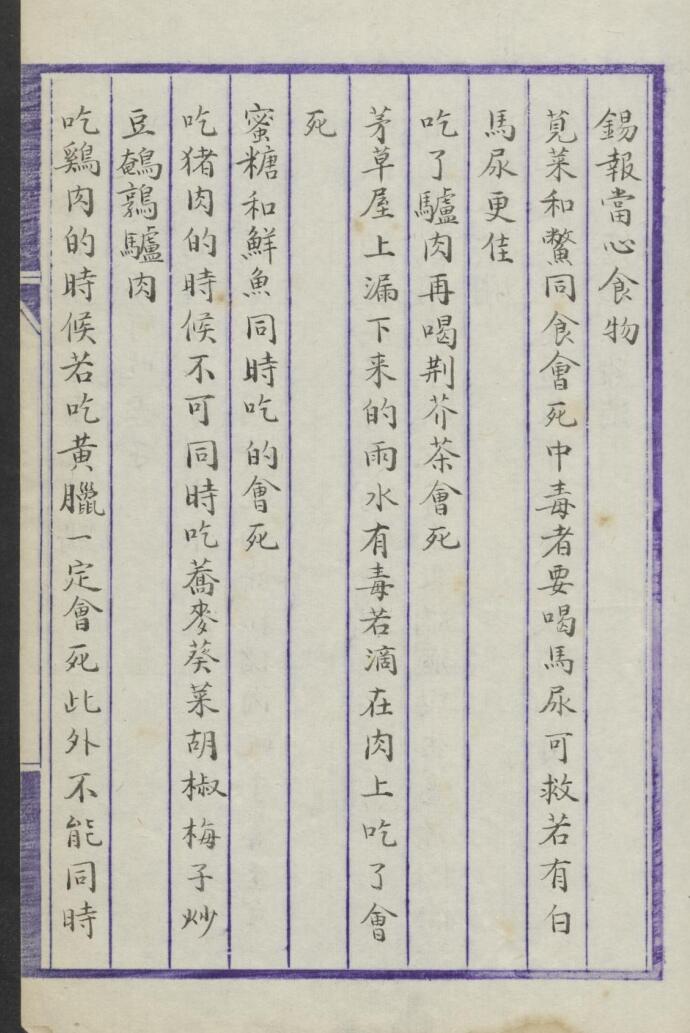 錫報當心食物
莧菜和鱉同食會死中毒者要喝馬尿可救若有白
馬尿更佳
吃了驢肉再喝荆芥茶會死
茅草屋上漏下来的雨水有毒若滴在肉上吃了會
死
蜜糖和鮮魚同時吃的會死
吃猪肉的時候不可同時吃蕎麥葵菜胡椒梅子炒
豆鵪鶉驢肉
吃鷄肉的時候若吃黄臘一定會死此外不能同時